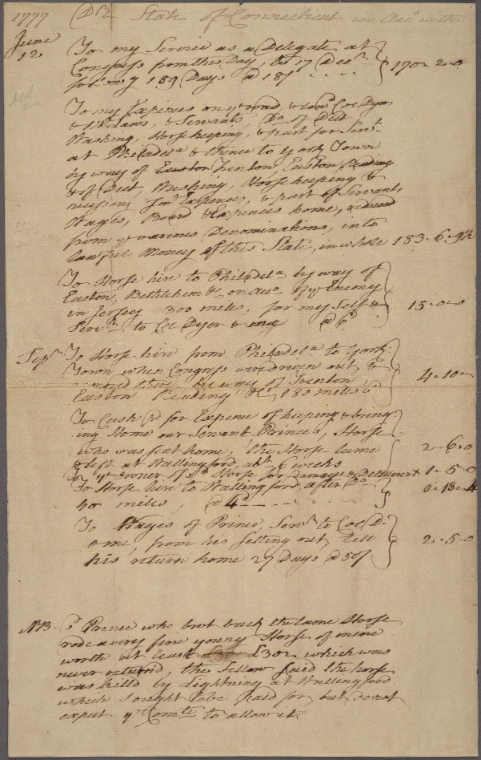 1777 Dr State of Connecticut in Acct with
June
12 To my Service as a Delegate at
Congress from this Day, to 17 Decr
for my 189 Days @ 18/ .... 170-2-0
To my Expenses on ye road, & Colo Dyer
& Servants, Do of Diet
Washing, Horse keeping, & part for Servt
at Philadea & thence to York Town
by way of Easton Trenton, Easton Reading
& of Diet, Washing, Horse keeping &
Expences, & part of Servants
Wages, Board & Expences home, reduced
from ye various Denominations, into
lawful Money of this State, in whole 183-6-9½
To Horse hire to Philadela by way of
Easton, Bethlehem &c on acct of ye Enemy
in Jersey 300 miles, for my self &
Servt to Col Dyer & me @ 6d 15-0-0
Sepr To Horse hire from Philadela to York
Town when Congress were driven out, &
by way of Trenton
Easton Reading &c 180 miles 4-10-
To Cash pd for Expense of keeping & bring-
ing Home our Servant Prince's, Horse
who was sent home, the Horse lame
& left at Wallingford, abt 6 weeks 2-6-0
To ye owner of sd Horse for Damages & Detainment 1-5-0
To Horse hire to Wallingford after Do
40 miles, @ 4d 0-13-4
To Wages of Prince, Servt to Col D.
& me, from his setting out, till
his return home 27 Days @ 2-5-0
NB. sd Prince who brot back the lame Horse
rode a very fine young Horse of mine
worth at least £30 which was
never returnd, the fellow said the horse
was killd by Lightning at Wallingford
which I ought to be paid for but do not
expect ye Comtee to allow it